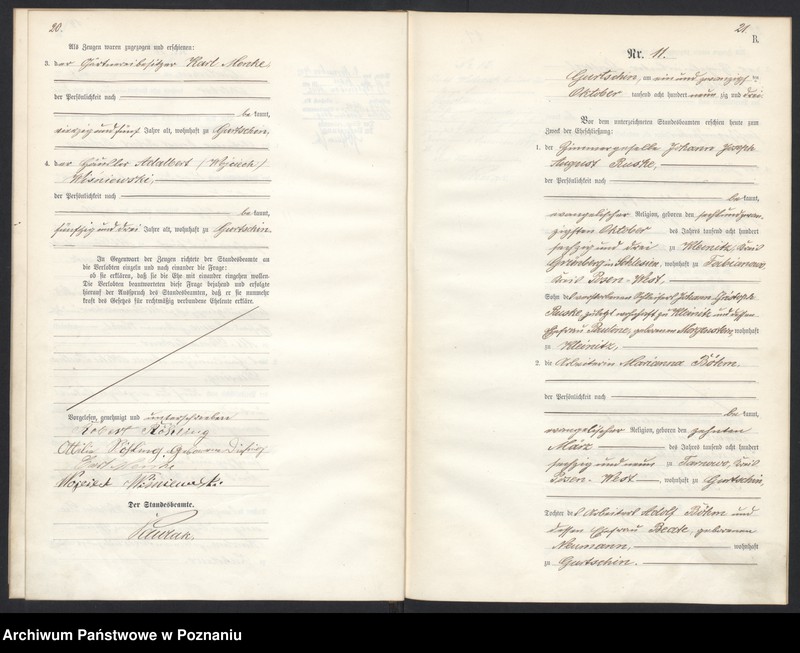 20.
Als Zeugen waren zugezogen und erschienen:
3. der Gärtnereibesitzer Karl
der Persönlichkeit nach
be kannt,
vierzig und fünf Jahre alt, wohnhaft zu Gurtschin,
4. der Häusler Adalbert (Wojciech)
Wiśniewski,
der Persönlichkeit nach
be kannt,
fünfzig und drei Jahre alt, wohnhaft zu Gurtschin.
In Gegenwart der Zeugen richtete der Standesbeamte an
die Verlobten einzeln und nach einander die Frage:
ob sie erklären, daß sie die Ehe mit einander eingehen wollen.
Die Verlobten beantworteten diese Frage bejahend und erfolgte
hierauf der Ausspruch des Standesbeamten, daß er sie nunmehr
kraft des Gesetzes für rechtmäßig verbundene Eheleute erkläre.
Vorgelesen, genehmigt und unterschrieben
Robert
Ottilie geborene
Karl
Wojciech Wiśniewski.
Der Standesbeamte.
21.
B.
Nr. 11.
Gurtschin, am ein und zwanzigsten
Oktober tausend acht hundert neun zig und drei
Vor dem unterzeichneten Standesbeamten erschienen heute zum
Zweck der Eheschließung:
1. der Zimmergeselle Johann Joseph
August Ruske,
der Persönlichkeit nach
be kannt,
evangelischer Religion, geboren den sechsundzwan-
zigsten Oktober des Jahres tausend acht hundert
sechzig und drei zu Kleinitz, Kreis
Grünberg in Schlesien, wohnhaft zu Fabianowo,
Kreis Posen-West,
Sohn des verstorbenen Johann
Ruske, zuletzt wohnhaft zu Kleinitz und dessen
Ehefrau Pauline, geborenen wohnhaft
zu Kleinitz,
2. die Arbeiterin Marianna Böhm,
der Persönlichkeit nach
be kannt,
evangelischer Religion, geboren den zehnten
März des Jahres tausend acht hundert
sechzig und neun zu Tarnowo, Kreis
Posen-West, wohnhaft zu Gurtschin,
Tochter des Arbeiters Adolf Böhm und
dessen Ehefrau Beate, geborenen
Neumann, wohnhaft
zu Gurtschin.
Archiwum Państwowe w Poznaniu